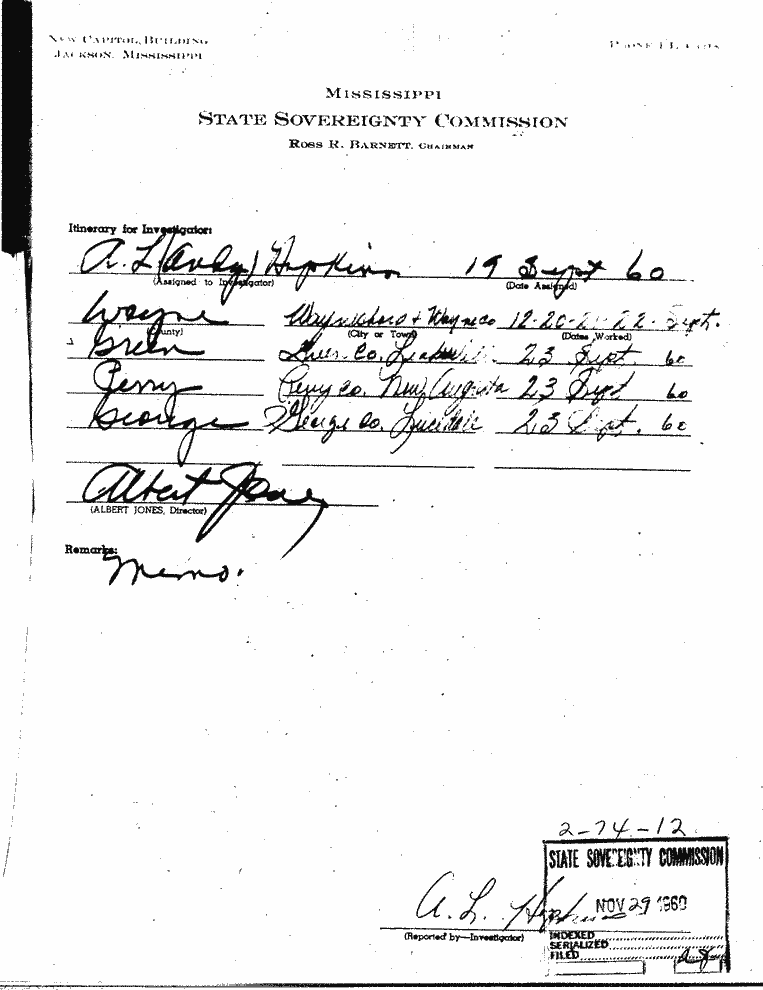 NEW CAPITOL BUILDING
JACKSON, MISSISSIPPI
MISSISSIPPI
STATE SOVEREIGNTY COMMISSION
ROSS R. BARNETT, CHAIRMAN
Itinerary for Investigator:
A. L. (Andy) Hopkins 19 Sept 60
(Assigned to Investigator) (Date Assigned)
Wayne Waynesboro + Wayne co 12-20-21-22- Sept.
(County) (City or Town) (Dates Worked)
Green Green Co. Leakesville 23 Sept. 60
Perry Perry co. New Augusta 23 Sept 60
George George Co. Lucedale 23 Sept. 60
Albert Jones
(ALBERT JONES, Director)
Remarks:
Memo.
2-74-12
STATE SOVEREIGNTY COMMISSION
A. L. Hopkins NOV 29 1960
(Reported by—Investigator)
INDEXED
SERIALIZED
FILED